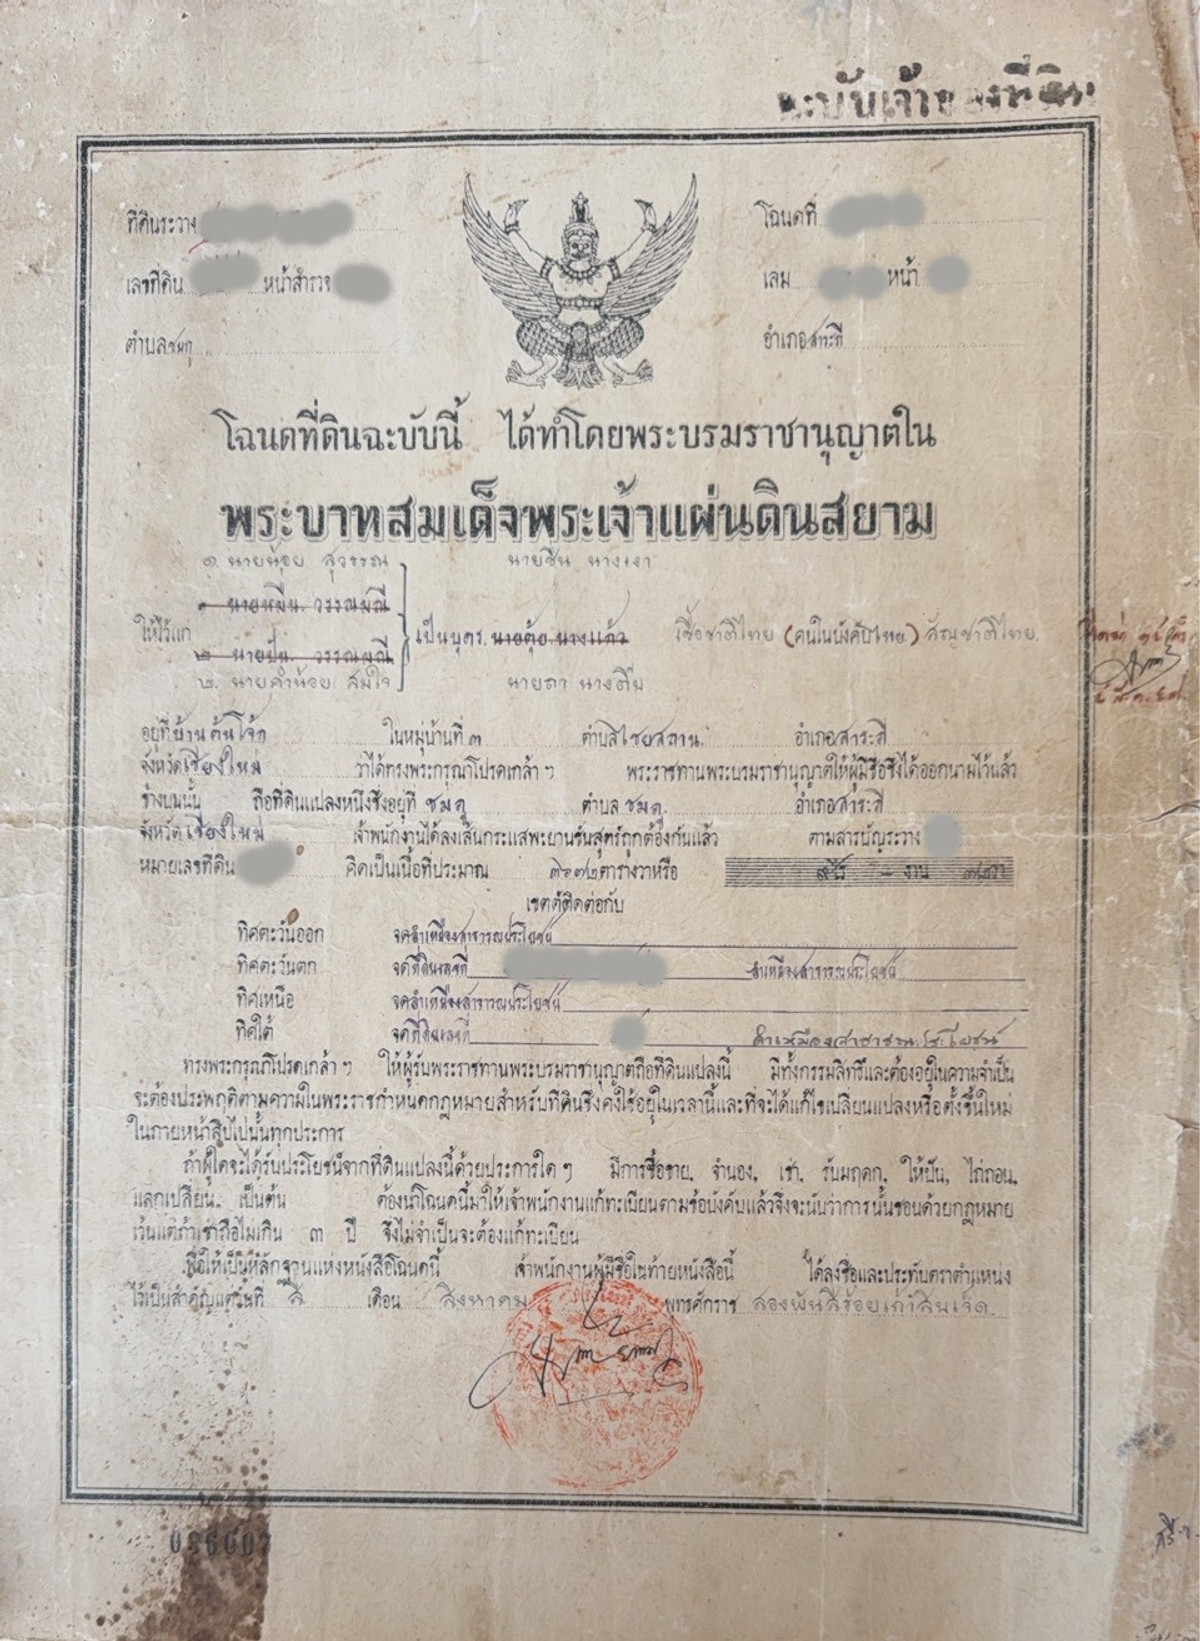 ฉะบับเจ้าของที่ดิน
ที่ดินระวาง
โฉนดที่
เลขที่ดิน หน้าสำรวจ
เล่ม หน้า
ตำบลชมภู
อำเภอสารภี
โฉนดที่ดินฉะบับนี้ ได้ทำโดยพระบรมราชานุญาตใน
พระบาทสมเด็จพระเจ้าแผ่นดินสยาม
๑. นายน้อย สุวรรณ นายชื่น นางเงา
๑ นายหมื่น วรรณมณี
ให้ไว้แก่ เป็นบุตร นายตุ้ย นางแก้ว เชื้อชาติไทย (คนในบังคับไทย) สัญชาติไทย
๒ นายปัน วรรณมณี
๒. นายคำน้อย สมใจ นายถา นางตีบ
อยู่ที่บ้านต้นโจ้ก ในหมู่บ้านที่ ๓ ตำบลไชยสถาน อำเภอสารภี
จังหวัดเชียงใหม่ ว่าได้ทรงพระกรุณาโปรดเกล้า ฯ พระราชทานพระบรมราชานุญาตให้ผู้มีชื่อซึ่งได้ออกนามไว้แล้ว
ข้างบนนั้น ถือที่ดินแปลงหนึ่งซึ่งอยู่ที่ ชมภู ตำบล ชมภู อำเภอสารภี
จังหวัดเชียงใหม่ เจ้าพนักงานได้ลงเส้นกระแสพะยานชันสูตร์ถูกต้องกันแล้ว ตามสารบัญระวาง
หมายเลขที่ดิน คิดเป็นเนื้อที่ประมาณ ๓๖๗๒ ตารางวาหรือ ๙ไร่ - งาน ๗๒วา
เขตต์ติดต่อกับ
ทิศตะวันออก จดลำเหมืองสาธารณประโยชน์
ทิศตะวันตก จดที่ดินเลขที่ ลำเหมืองสาธารณประโยชน์
ทิศเหนือ จดลำเหมืองสาธารณประโยชน์
ทิศใต้ จดที่ดินเลขที่ ลำเหมืองสาธารณะประโยชน์
ทรงพระกรุณาโปรดเกล้า ฯ ให้ผู้รับพระราชทานพระบรมราชานุญาตถือที่ดินแปลงนี้ มีทั้งกรรมสิทธิ์และต้องอยู่ในความจำเป็น
จะต้องประพฤติตามความในพระราชกำหนดกฎหมายสำหรับที่ดินซึ่งคงใช้อยู่ในเวลานี้และที่จะได้แก้ไขเปลี่ยนแปลงหรือตั้งขึ้นใหม่
ในภายหน้าสืบไปนั้นทุกประการ
ถ้าผู้ใดจะได้รับประโยชน์จากที่ดินแปลงนี้ด้วยประการใด ๆ มีการซื้อขาย, จำนอง, เช่า, รับมฤดก, ให้ปัน, ไถ่ถอน,
แลกเปลี่ยน, เป็นต้น ต้องนำโฉนดนี้มาให้เจ้าพนักงานแก้ทะเบียนตามข้อบังคับแล้วจึ่งจะนับว่าการนั้นชอบด้วยกฎหมาย
เว้นแต่ถ้าเช่าถือไม่เกิน ๓ ปี จึงไม่จำเป็นจะต้องแก้ทะเบียน
เพื่อให้เป็นหลักฐานแห่งหนังสือโฉนดนี้ เจ้าพนักงานผู้มีชื่อในท้ายหนังสือนี้ ได้ลงชื่อและประทับตราตำแหน่ง
ไว้เป็นสำคัญแต่วันที่ สี่ เดือน สิงหาคม พุทธศักราช สองพันสี่ร้อยเก้าสิบเจ็ด